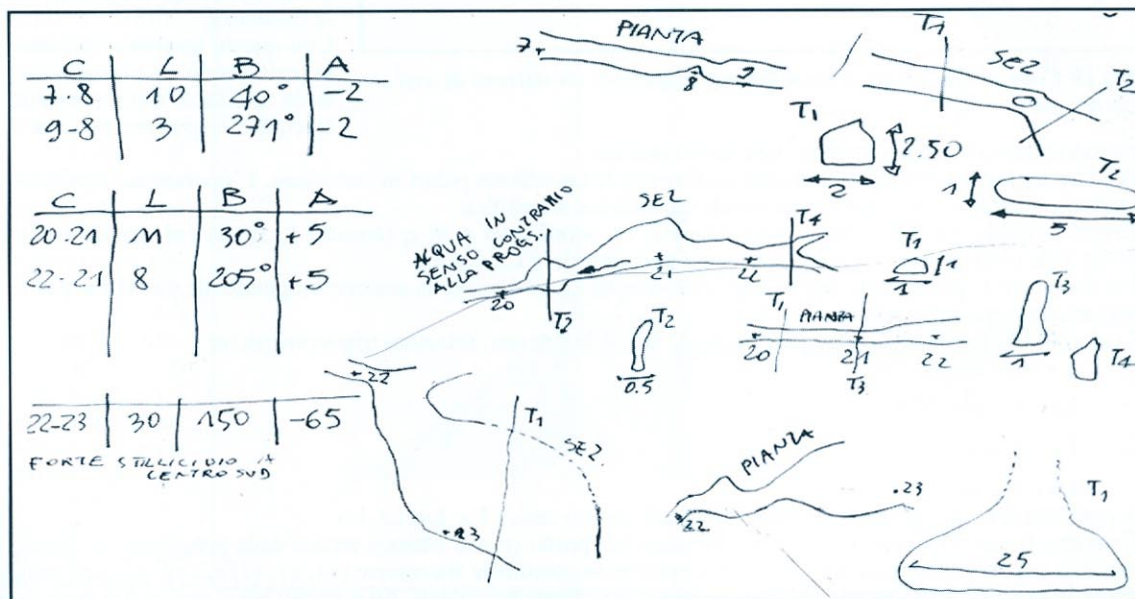 C L B A
7-8 10 40° -2
9-8 3 271° -2
C L B A
20-21 11 30° +5
22-21 8 205° +5
22-23 30 150 -65
FORTE STILLICIDIO A
CENTRO SUD
PIANTA
7
8
9
T1
SEZ
T2
T1
2.50
2
T2
1
5
ACQUA IN
SENSO CONTRARIO
ALLA PROGS.
SEZ
T4
20
21
22
T2
T2
0.5
T1
1
1
T1
PIANTA
20
21
22
T3
T3
1
T4
22
T1
SEZ
23
PIANTA
22
.23
T1
25